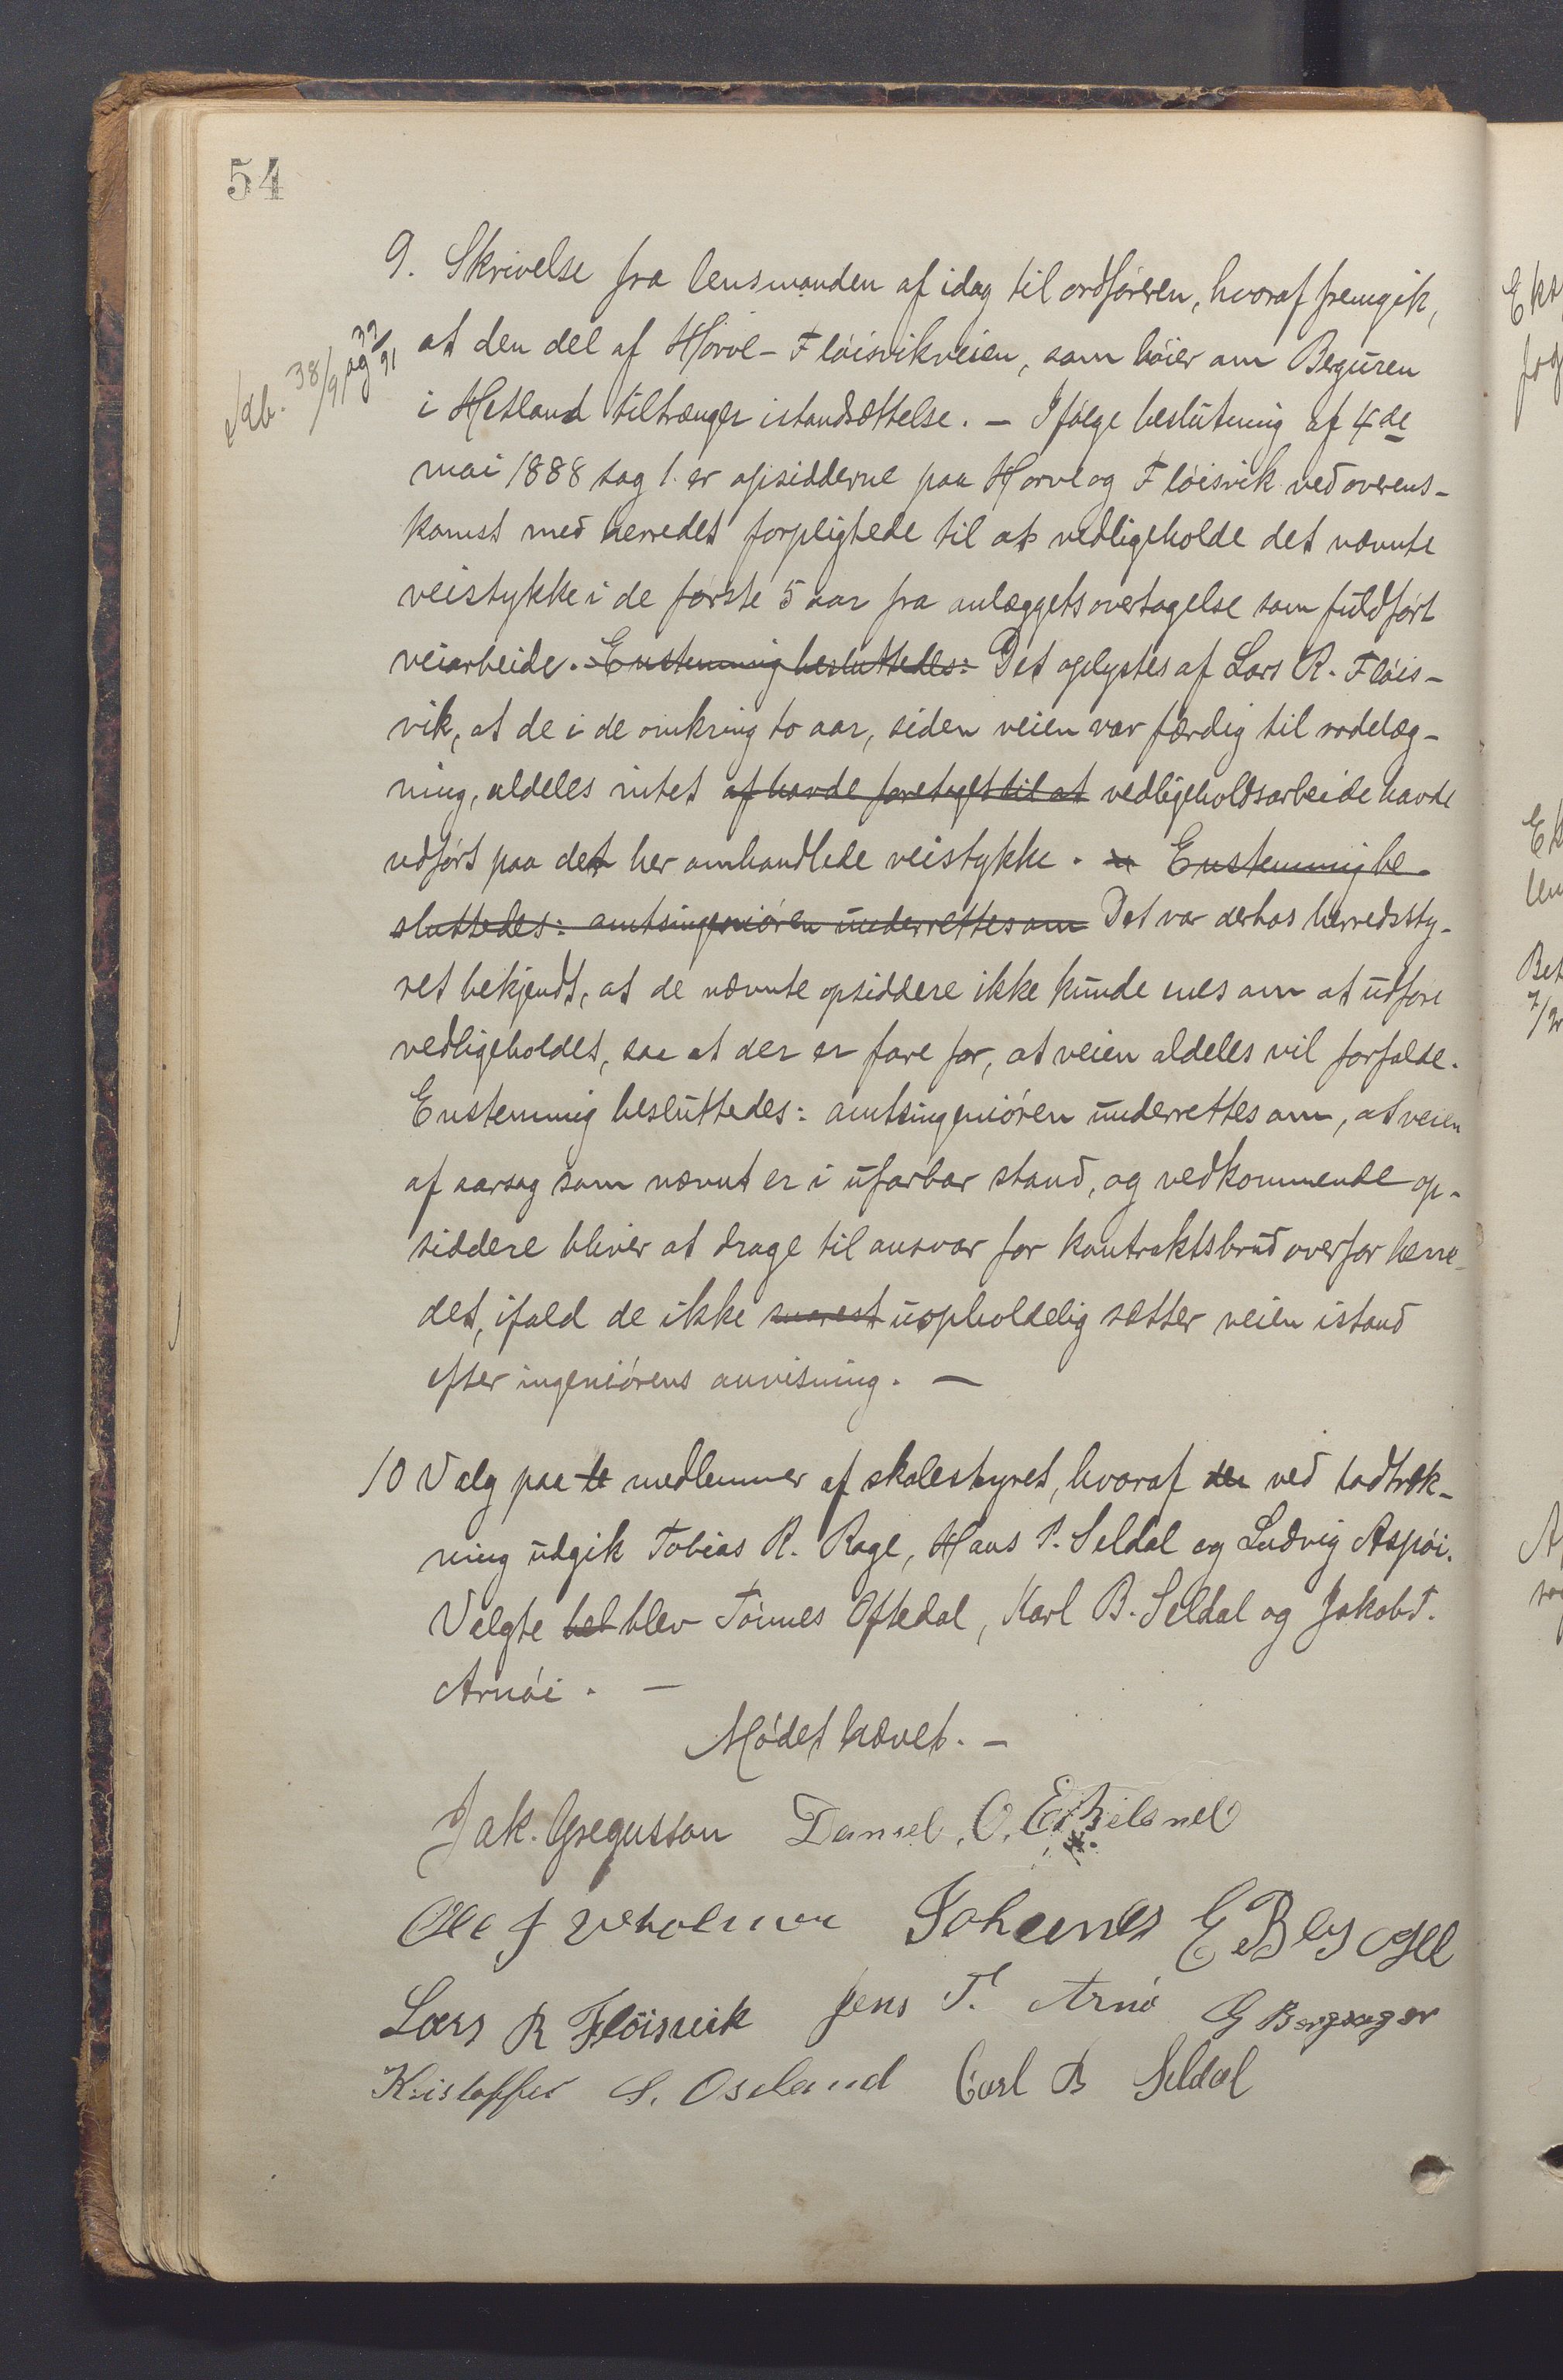 54
9. Skrivelse fra lensmanden af idag til ordføreren, hvoraf fremgik,
Kb. 38/91 og 39/91
at den del af Hörve-Flöisvikveien, som höier om Berguren
i Hetland tiltrænger istandsættelse. — Ifølge beslutning af 4de
mai 1888 sag 1. er opsidderne paa Horve og Flöisvik ved overens-
komst med herredet forpligtede til at vedligeholde det nævnte
veistykke i de første 5 aar fra anlæggets overtagelse som fuldført
veiarbeide. Enstemmig besluttedes: Det oplystes af Lars R. Flöis-
vik, at de i de omkring to aar, siden veien var færdig til rodelæg-
ning, aldeles intet af havde foretaget til at vedligeholdsarbeide havde
udført paa det her omhandlede veistykke. Enstemmig be-
sluttedes: amtsingeniören underrettes om Det var derhos herredssty-
ret bekjendt, at de nævnte opsiddere ikke kunde enes om at udføre
vedligeholdet, saa at der er fare for, at veien aldeles vil forfalde.
Enstemmig besluttedes: amtsingeniören underrettes om, at veien
af aarsag som nævnt er i ufarbar stand, og vedkommende op-
siddere bliver at drage til ansvar for kontraktsbrud overfor herre-
det, ifald de ikke snarest uopholdelig sætter veien istand
efter ingeniörens anvisning. —
10 Valg paa to medlemmer af skolestyret, hvoraf der ved lodtræk-
ning udgik Tobias R. Rage, Hans P. Seldal og Ludvig Aspöi.
Valgte bel blev Tönnes Oftedal, Karl B. Seldal og Jakob T.
Arnöi. —
Mödet hævet. —
Jak. Gregusson Daniel. O. Eskelsnel
Ole J Veholmen Johannes E Bergsagel
Lars R Flöisvik Jens T. Arnö G Bergsager
Kristoffer S. Oseland Carl B Seldal